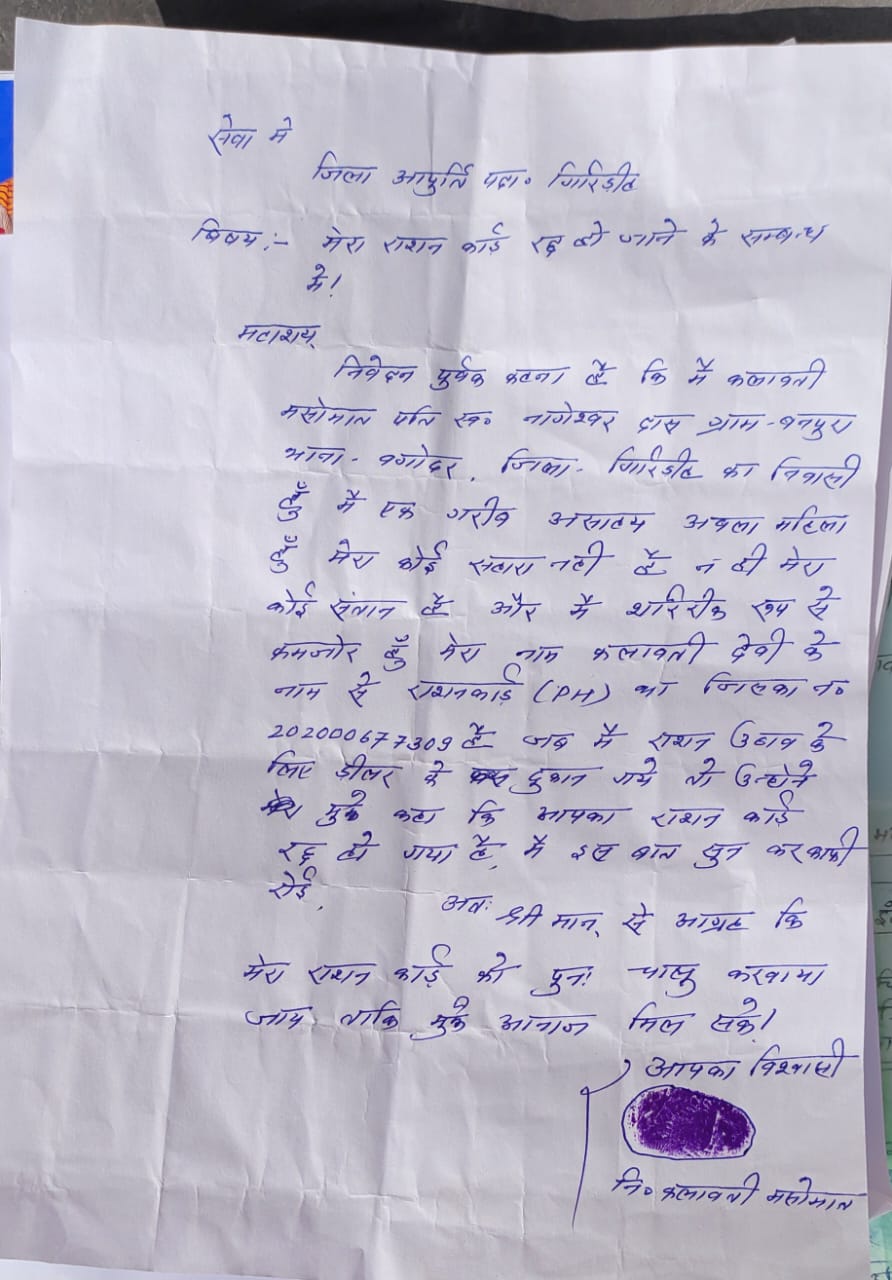 सेवा मे
जिला आपुर्ति पदा० गिरिडीह
विषय :- मेरा राशन कार्ड रद्द हो जाने के सम्बन्ध
मे।
महाशय,
निवेदन पुर्वक कहना है कि मै कलावती
मसोमात पति स्व० नागेश्वर दास ग्राम - बनपुरा
थाना - बगोदर, जिला - गिरिडीह का निवासी
हुँ मै एक गरीब असाहाय अबला महिला
हुँ मेरा कोई सहारा नही है न ही मेरा
कोई संतान है और मै शारिरीक रूप से
कमजोर हुँ मेरा नाम कलावती देवी के
नाम से राशनकार्ड (PH) का जिसका न०
202000677309 है जब मै राशन उठाव के
लिए डीलर के दुकान गये तो उन्होने
मुझे कहा कि आपका राशन कार्ड
रद्द हो गया है, मै इस बात सुन कर काफी
रोई,
अतः श्री मान् से आग्रह कि
मेरा राशन कार्ड को पुनः चालु करवाया
जाय ताकि मुझे आनाज मिल सके।
आपका विश्वासी
नि० कलावती मसोमात